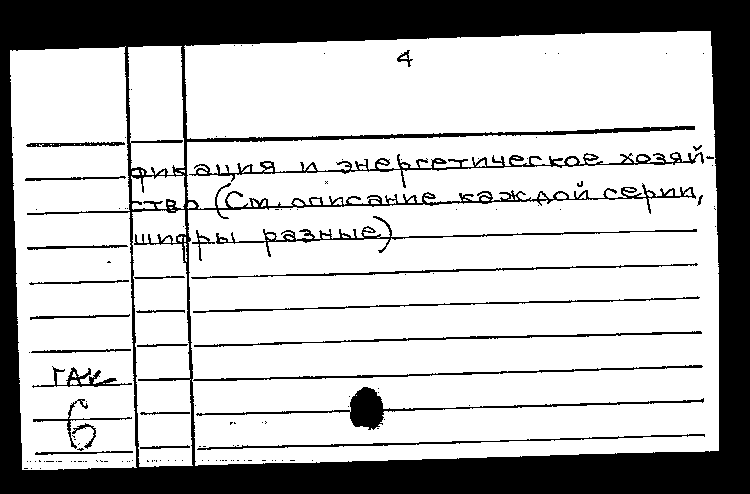 4
фикация и энергетическое хозяй-
ство (См. описание каждой серии,
шифры разные)
ГАК
6